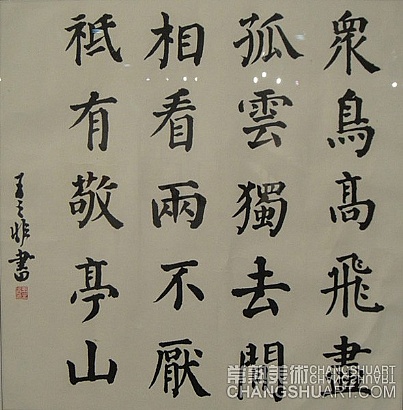 衆鳥髙飛盡
孤雲獨去閒
相看兩不厭
祗有敬亭山
王之書
常熟美術 CHANGSHUART
CHANGSHUART.COM